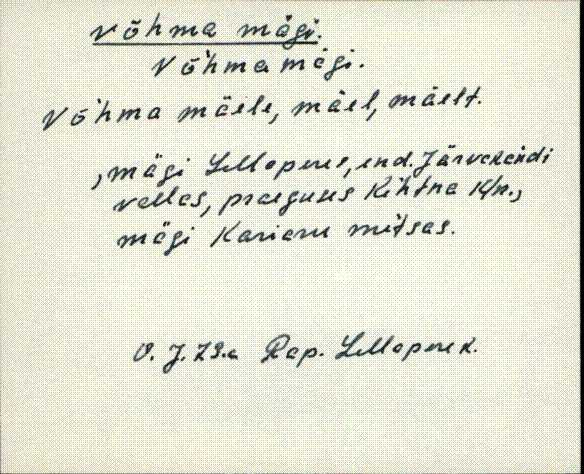 Võhma mägi.
Võhma mägi.
Võhma mäele, mäel, mäelt.
, mägi Lelloperes, end. Järvakandi
vallas, praeguses Kehtna K/n.,
mägi Karieru mitsas.
O. J. 79.a Rap. Lellopere k.